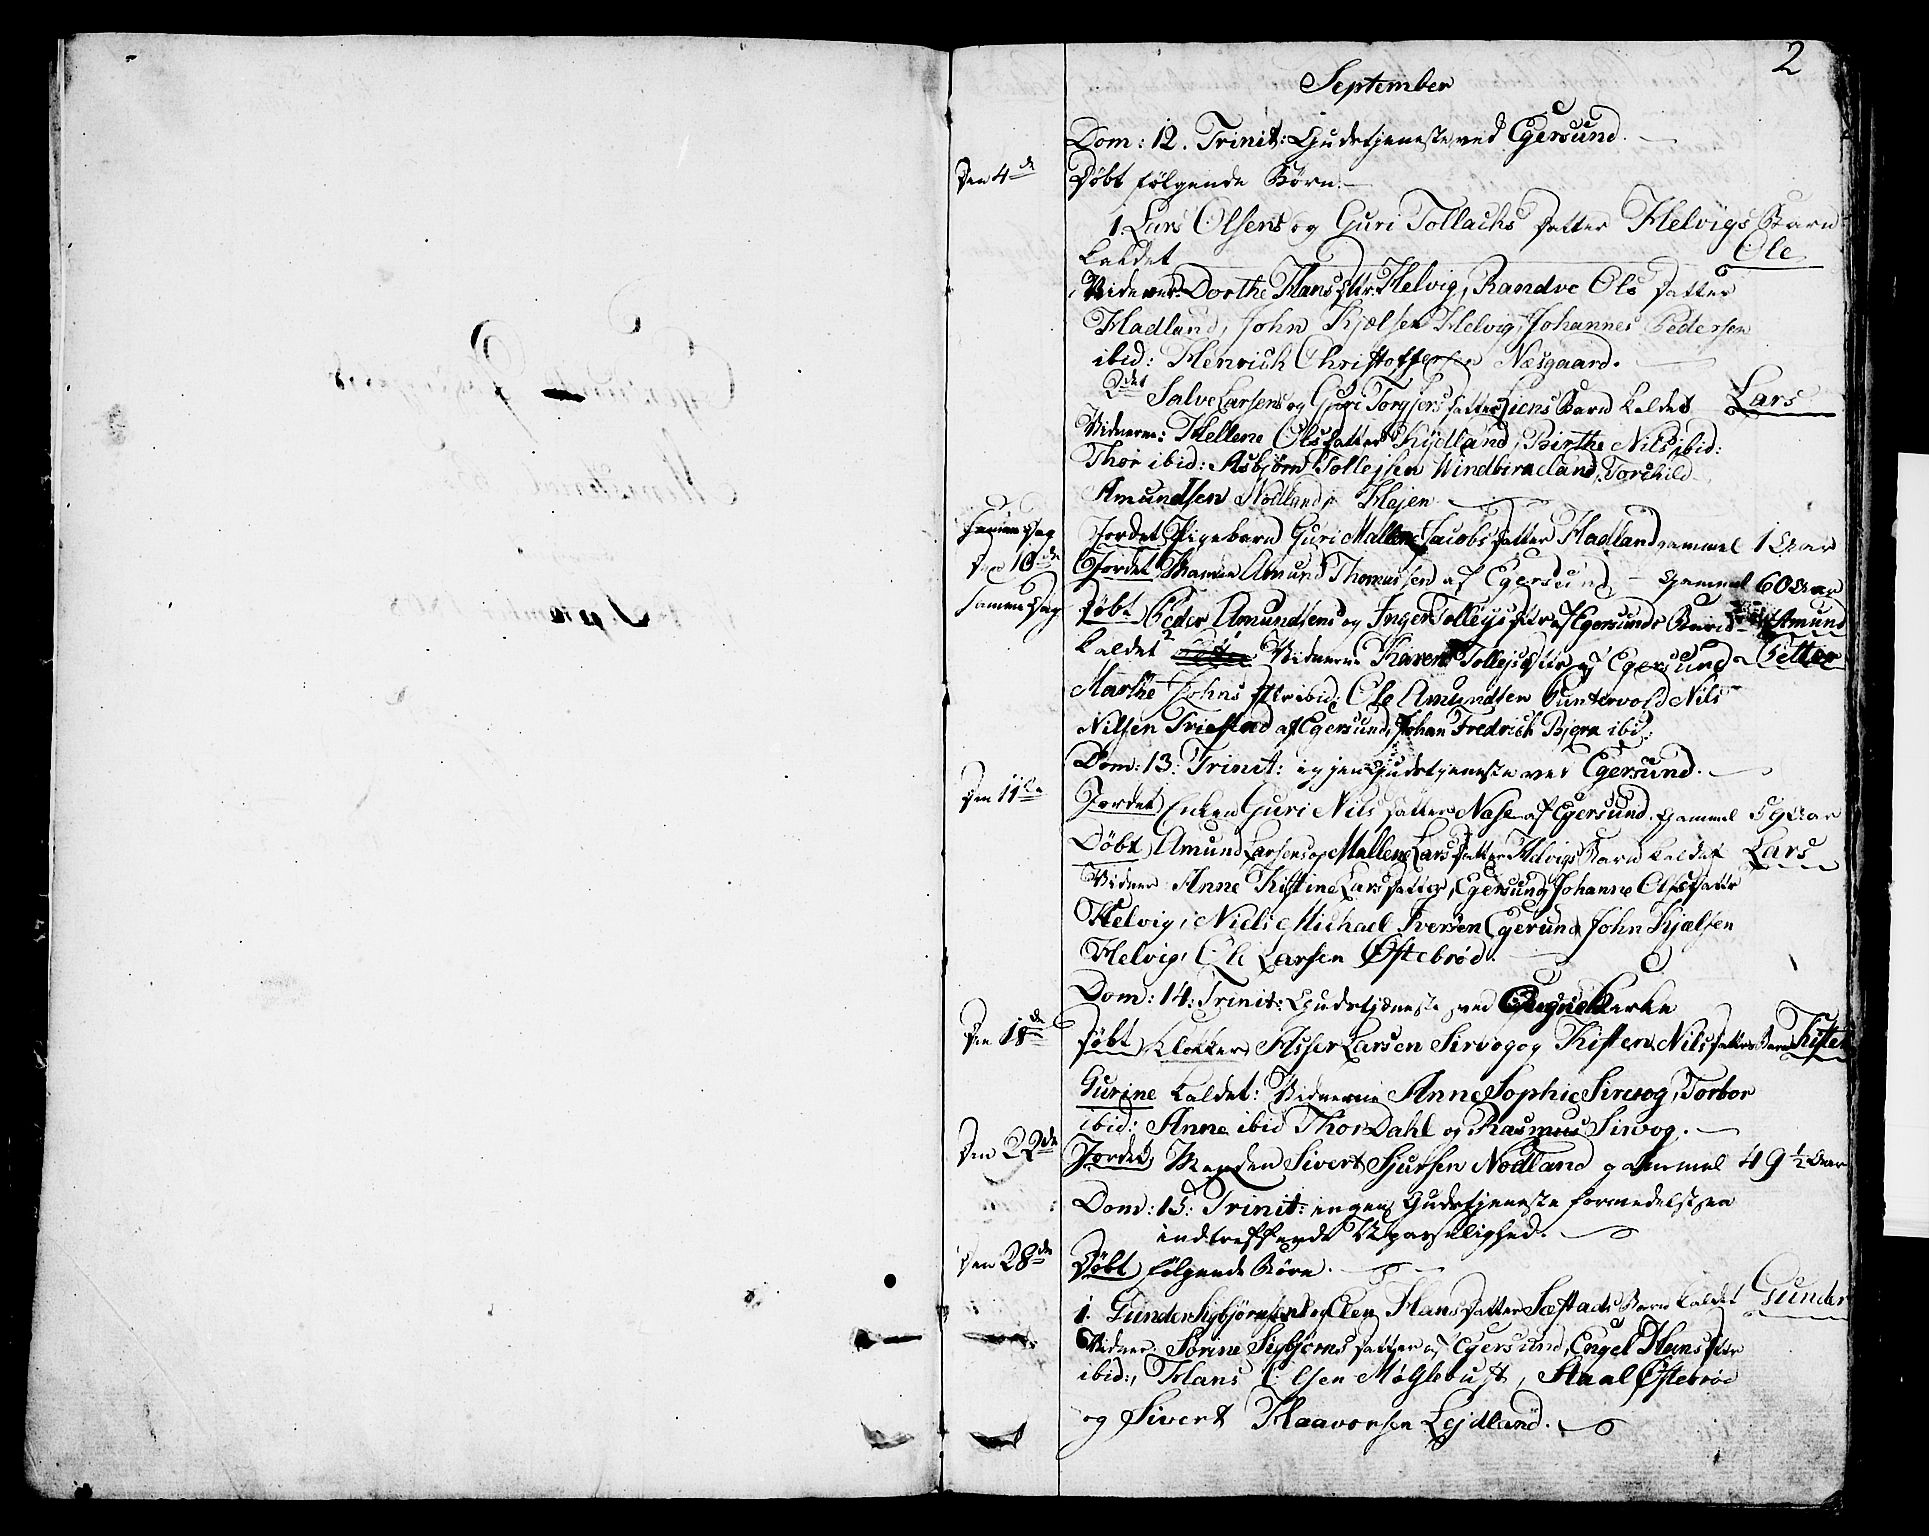 2
September
Dom: 12. Trinit: Gudstjeneste ved Egersund.
Den 4de Döbt følgende Börn.
1. Lars Olsens og Guri Tollachs Datter Helvigs Barn
kaldet Ole
Vidner: Dorthe Hans Dtr. Helvig, Randve Ols Datter
Hadland, John Kjælsen Helvig, Johannes Pedersen
ibid: Henrich Christoffersen Næsgaard.
2det Salve Larsens og Guri Torgjers Datter Liens Barn kaldet Lars
Vidnerne: Hellene Ols Datter Rydland, Birthe Nils ibid:
Thor ibid: Asbjørn Tollejsen Windbirneland, Torchild
Amundsen Nodland, Hejen
Samme Dag Jordet Pigebarn Guri Mallene Jacobs Datter Hadland gammel 1 Aar
Den 10de Jordet Manden Amund Thomassen af Egersund gammel 60 Aar
Samme Dag Döbt Peder Amundsens og Inger Tolleys Dtr af Egersunds Barn Amund
kaldet Vidnerne Karen Tollejs Dtr af Egersund Petter
Marthe Johns Dtr ibid: Ole Amundsen Puntervold Nils
Nilsen Triestad af Egersund, Johan Fredrich Bjern ibid:
Dom: 13: Trinit: igjen Gudstjeneste ved Egersund.
Den 11te Jordet Enken Guri Nils Datter Nase af Egersund. gammel 59 Aar
Döbt Amund Larsens og Mallene Lars Datter Helvigs Barn kaldet Lars
Vidner Anne Kistine Lars Datter, Egersund Johanne Ols Datr
Helvig, Niels Michael Iversen Egersund John Kjælsen
Helvig, Ole Larsen Østebrød.
Dom: 14: Trinit: Gudstjeneste ved Ougne Kerke
Den 18de Döbt Klokker Asser Larsen Sirvog og Kisten Nils Datters Barn Kisten
Gurine kaldet: Vidnerne Anne Sophie Sirevog, Torbor
ibid: Anne ibid Thor Dahl og Rasmus Sirvog.
Den 22de Jordet Manden Sivert Sjursen Nodland gammel 49 ½ Aar
Dom: 15: Trinit: ingen Gudstjeneste formedelst en
indtreffende Upasselighed.
Den 28de Döbt følgende Börn.
1. Gunder Sigbjörnsens og Elen Hans Datter Sæstads Barn kaldet Gunder
Vidner. Sorine Sigbjorns Datter af Egersund, Engel Hans Dtr
ibid:, Hans Olsen Møglebust, Staal Østebrød
og Sivert Haavorsen Lejdland.